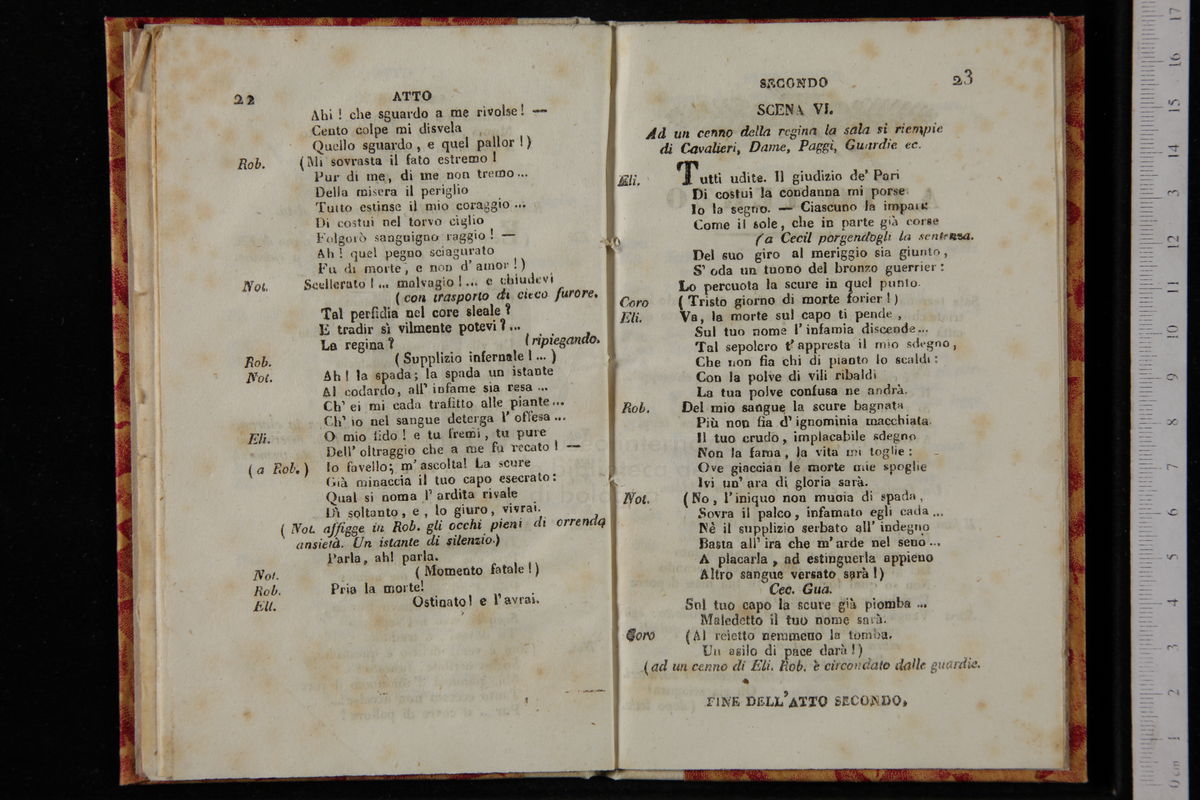 22
ATTO
Ahi ! che sguardo a me rivolse ! —
Cento colpe mi disvela
Quello sguardo , e quel pallor !)
Rob. (Mi sovrasta il fato estremo !
Pur di me, di me non tremo ...
Della misera il periglio
Tutto estinse il mio coraggio ...
Di costui nel torvo ciglio
Folgorò sanguigno raggio ! —
Ah ! quel pegno sciagurato
Fu di morte, e non d' amor !)
Not. Scellerato !... malvagio !... e chiudevi
(con trasporto di cieco furore.
Tal perfidia nel core sleale ?
E tradir sì vilmente potevi ?...
La regina ? (ripiegando.
Rob. (Supplizio infernale ! ... )
Not. Ah ! la spada ; la spada un istante
Al codardo, all' infame sia resa ...
Ch' ei mi cada trafitto alle piante...
Ch' io nel sangue deterga l' offesa ...
Eli. O mio fido ! e tu fremi , tu pure
Dell' oltraggio che a me fu recato ! —
(a Rob.) Io favello; m' ascolta! La scure
Già minaccia il tuo capo esecrato:
Qual si noma l' ardita rivale
Dì soltanto, e , lo giuro, vivrai.
( Not. affigge in Rob. gli occhi pieni di orrenda
ansietà. Un istante di silenzio.)
Parla, ah! parla.
Not. ( Momento fatale !)
Rob. Pria la morte!
Eli. Ostinato! e l' avrai.
SECONDO
23
SCENA VI.
Ad un cenno della regina la sala si riempie
di Cavalieri, Dame, Paggi, Guardie ec.
Eli. Tutti udite. Il giudizio de' Pari
Di costui la condanna mi porse
Io la segno. — Ciascuno la impari:
Come il sole, che in parte già corse
(a Cecil porgendogli la sentenza.
Del suo giro al meriggio sia giunto,
S' oda un tuono del bronzo guerrier :
Lo percuota la scure in quel punto.
Coro (Tristo giorno di morte forier !)
Eli. Va, la morte sul capo ti pende ,
Sul tuo nome l' infamia discende ...
Tal sepolcro t' appresta il mio sdegno ,
Che non fia chi di pianto lo scaldi :
Con la polve di vili ribaldi
La tua polve confusa ne andrà.
Rob. Del mio sangue la scure bagnata
Più non fia d' ignominia macchiata.
Il tuo crudo , implacabile sdegno
Non la fama , la vita mi toglie :
Ove giaccian le morte mie spoglie
Ivi un' ara di gloria sarà.
Not. (No, l' iniquo non muoia di spada ,
Sovra il palco, infamato egli cada ...
Nè il supplizio serbato all' indegno
Basta all' ira che m' arde nel seno ...
A placarla , ad estinguerla appieno
Altro sangue versato sarà !)
Cec. Gua.
Sul tuo capo la scure già piomba ...
Maledetto il tuo nome sarà.
Coro (Al reietto nemmeno la tomba.
Un asilo di pace darà !)
(ad un cenno di Eli. Rob. è circondato dalle guardie.
FINE DELL' ATTO SECONDO.